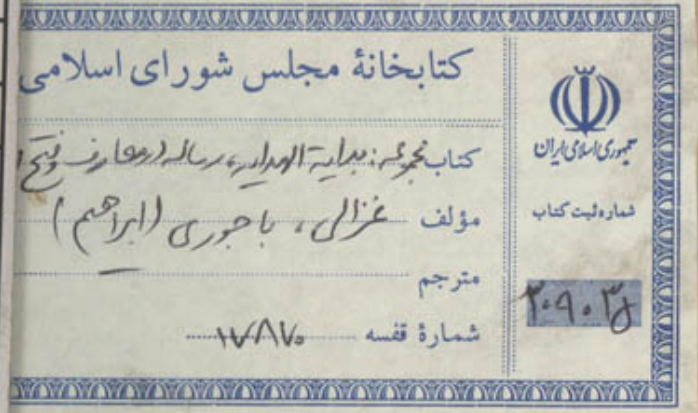 کتابخانهٔ مجلس شورای اسلامی
کتاب مجموعه: بدایة الهدایه، رساله در معارف و فتح
مؤلف غزالی، باجوری (ابراهیم)
مترجم
شمارهٔ قفسه ۱۷۸۷۰
جمهوری اسلامی ایران
شماره ثبت کتاب